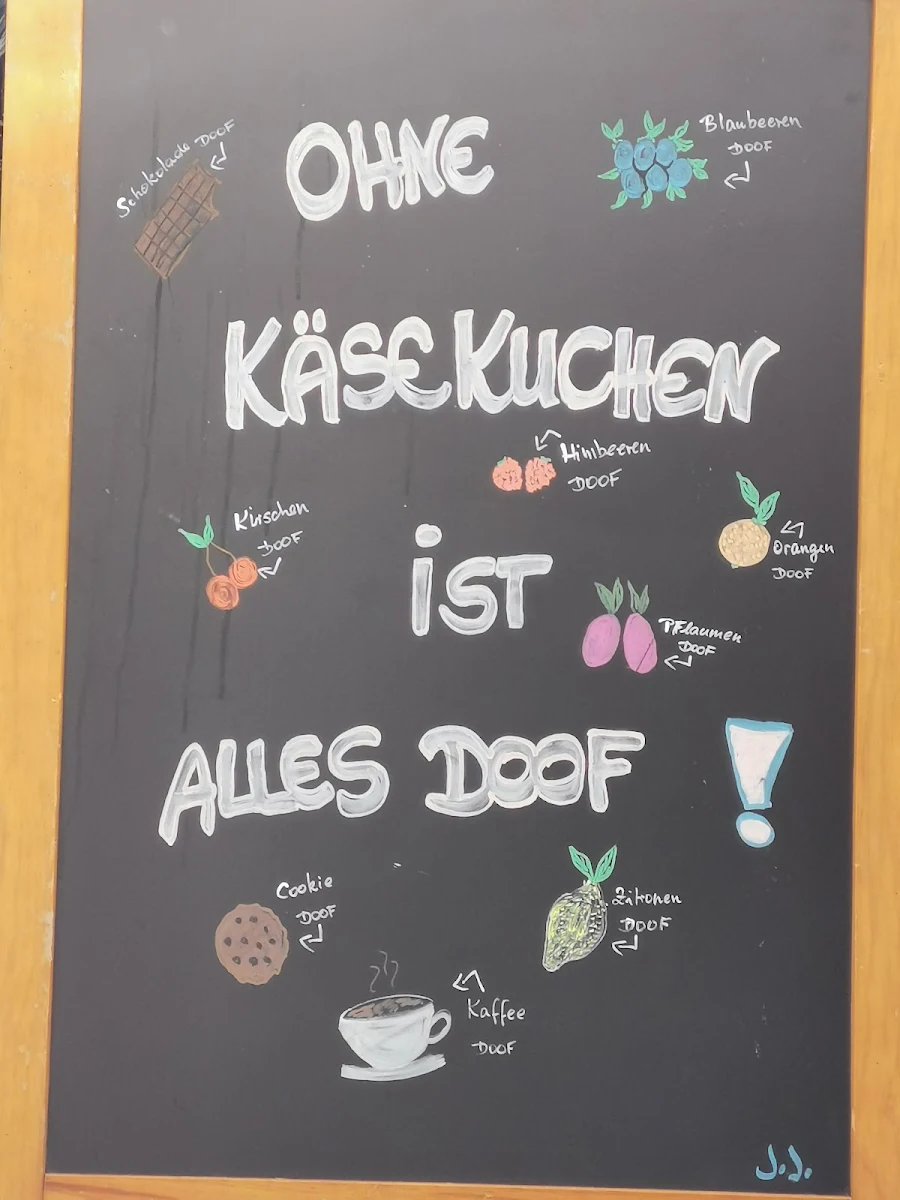 Schokolade DOOF
OHNE
Blaubeeren
DOOF
KÄSEKUCHEN
Himbeeren
DOOF
Kirschen
DOOF
iST
Orangen
DOOF
PFlaumen
DOOF
ALLES DOOF !
Cookie
DOOF
Zitronen
DOOF
Kaffee
DOOF
J.J.